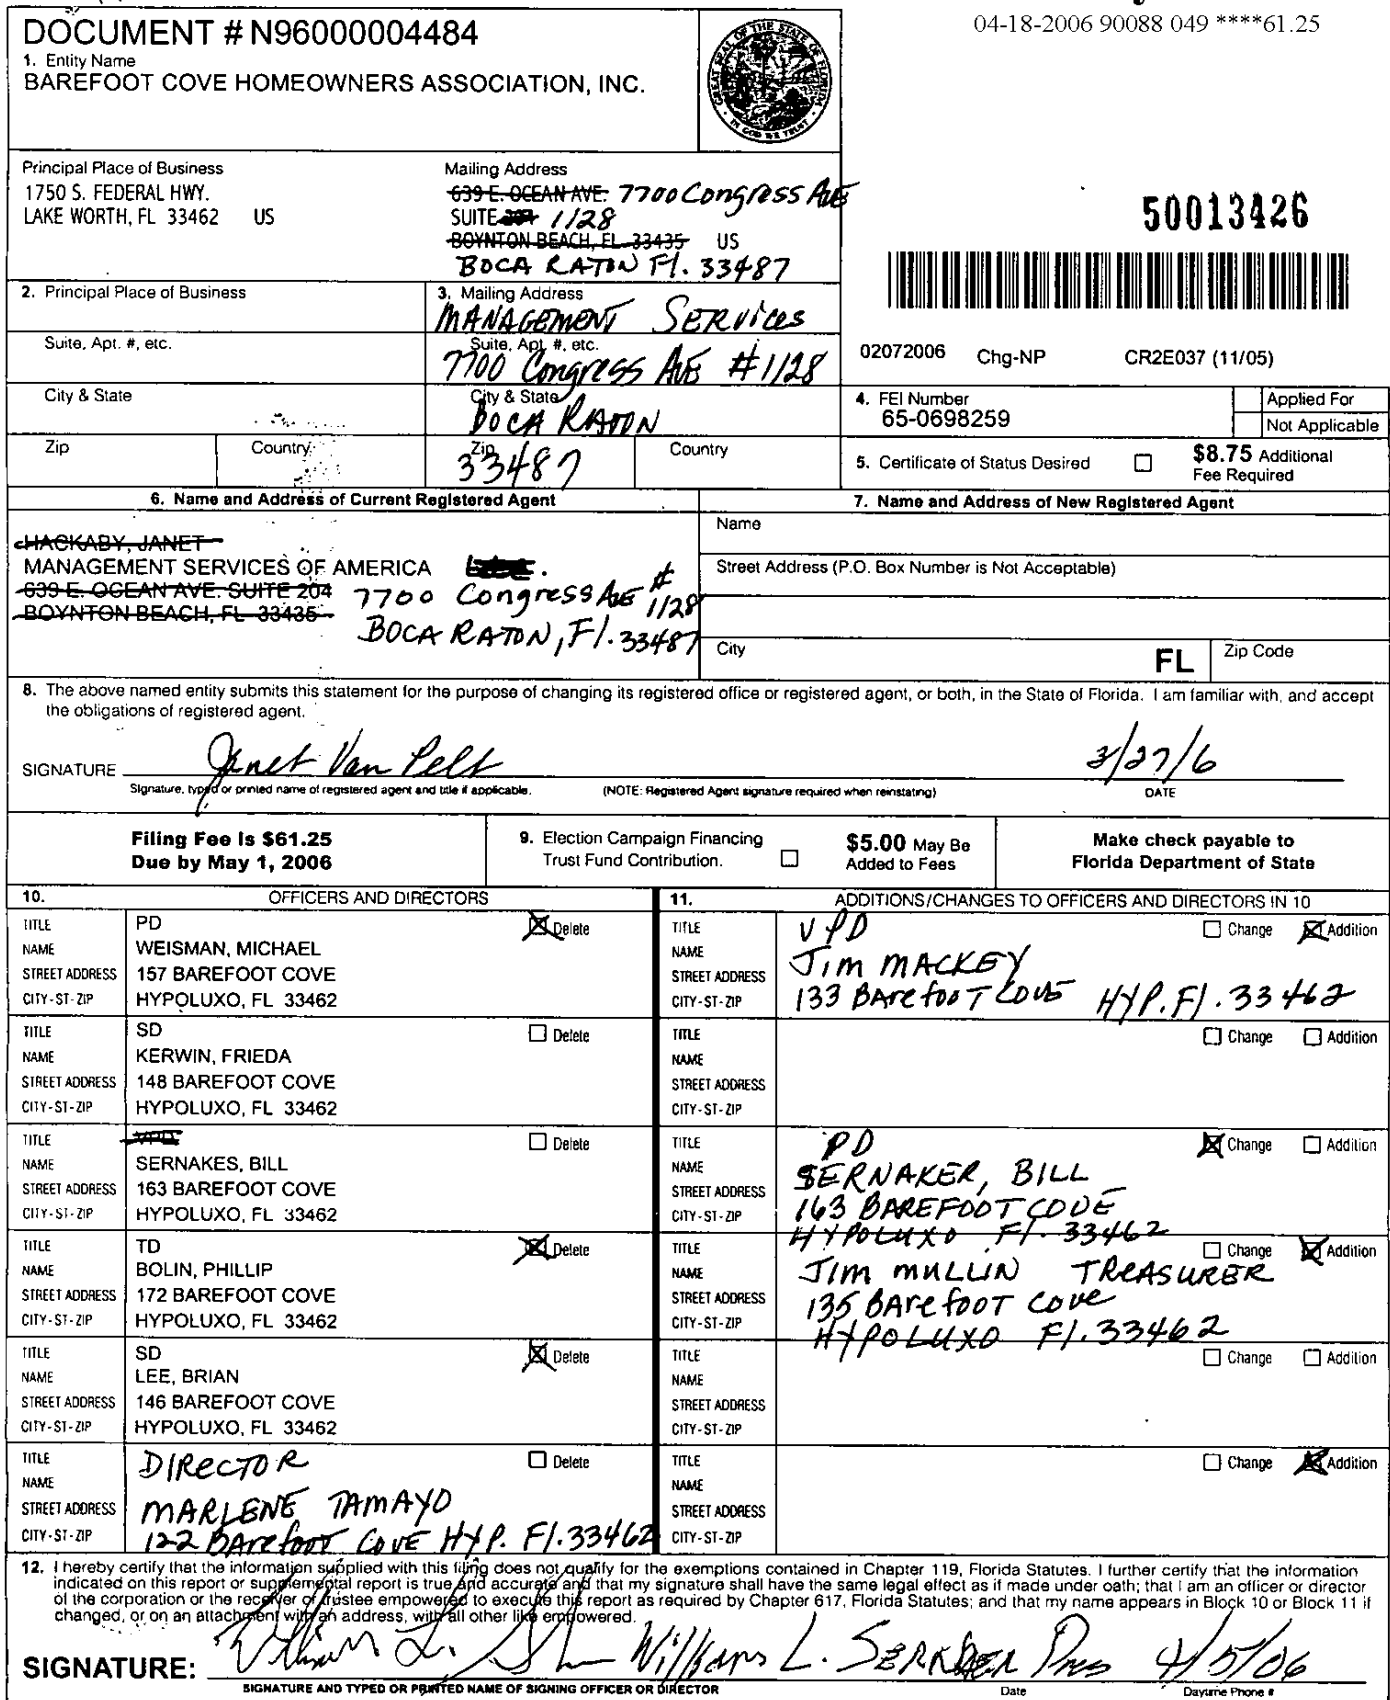 04-18-2006 90088 049 ****61.25
DOCUMENT # N96000004484
1. Entity Name
BAREFOOT COVE HOMEOWNERS ASSOCIATION, INC.
GREAT SEAL OF THE STATE OF FLORIDA
IN GOD WE TRUST
Principal Place of Business
1750 S. FEDERAL HWY.
LAKE WORTH, FL 33462 US
Mailing Address
639 E. OCEAN AVE. 7700 Congress AVE
SUITE 204 1128
BOYNTON BEACH, FL 33435 US
BOCA RATON Fl. 33487
50013426
2. Principal Place of Business
Suite, Apt. #, etc.
City & State
Zip Country
3. Mailing Address
MANAGEMENT SERVICES
Suite, Apt. #, etc.
7700 Congress AVE #1128
City & State
BOCA RATON
Zip Country
33487
02072006 Chg-NP CR2E037 (11/05)
4. FEI Number
65-0698259
Applied For
Not Applicable
5. Certificate of Status Desired
$8.75 Additional
Fee Required
6. Name and Address of Current Registered Agent
HACKABY, JANET
MANAGEMENT SERVICES OF AMERICA
639 E. OCEAN AVE. SUITE 204 7700 Congress AVE #1128
BOYNTON BEACH, FL 33435 BOCA RATON, Fl. 33487
7. Name and Address of New Registered Agent
Name
Street Address (P.O. Box Number is Not Acceptable)
City FL Zip Code
8. The above named entity submits this statement for the purpose of changing its registered office or registered agent, or both, in the State of Florida. I am familiar with, and accept
the obligations of registered agent.
SIGNATURE Janet Van Pelt 3/27/6
Signature, typed or printed name of registered agent and title if applicable. (NOTE: Registered Agent signature required when reinstating) DATE
Filing Fee is $61.25
Due by May 1, 2006
9. Election Campaign Financing
Trust Fund Contribution.
$5.00 May Be
Added to Fees
Make check payable to
Florida Department of State
10. OFFICERS AND DIRECTORS
11. ADDITIONS/CHANGES TO OFFICERS AND DIRECTORS IN 10
TITLE PD Delete
NAME WEISMAN, MICHAEL
STREET ADDRESS 157 BAREFOOT COVE
CITY-ST-ZIP HYPOLUXO, FL 33462
TITLE VPD Change Addition
NAME Jim MACKEY
STREET ADDRESS 133 BArefooT COVE HYP. Fl. 33462
CITY-ST-ZIP
TITLE SD Delete
NAME KERWIN, FRIEDA
STREET ADDRESS 148 BAREFOOT COVE
CITY-ST-ZIP HYPOLUXO, FL 33462
TITLE Change Addition
NAME
STREET ADDRESS
CITY-ST-ZIP
TITLE VPD Delete
NAME SERNAKES, BILL
STREET ADDRESS 163 BAREFOOT COVE
CITY-ST-ZIP HYPOLUXO, FL 33462
TITLE PD Change Addition
NAME SERNAKER, BILL
STREET ADDRESS 163 BAREFOOT COVE
CITY-ST-ZIP HYPOLUXO Fl. 33462
TITLE TD Delete
NAME BOLIN, PHILLIP
STREET ADDRESS 172 BAREFOOT COVE
CITY-ST-ZIP HYPOLUXO, FL 33462
TITLE Change Addition
NAME Jim MULLIN TREASURER
STREET ADDRESS 135 BArefooT Cove
CITY-ST-ZIP HYPOLUXO Fl. 33462
TITLE SD Delete
NAME LEE, BRIAN
STREET ADDRESS 146 BAREFOOT COVE
CITY-ST-ZIP HYPOLUXO, FL 33462
TITLE Change Addition
NAME
STREET ADDRESS
CITY-ST-ZIP
TITLE DIRECTOR Delete
NAME
STREET ADDRESS MARLENE TAMAYO
CITY-ST-ZIP 122 BArefooT COVE HYP. Fl. 33462
TITLE Change Addition
NAME
STREET ADDRESS
CITY-ST-ZIP
12. I hereby certify that the information supplied with this filing does not qualify for the exemptions contained in Chapter 119, Florida Statutes. I further certify that the information
indicated on this report or supplemental report is true and accurate and that my signature shall have the same legal effect as if made under oath; that I am an officer or director
of the corporation or the receiver or trustee empowered to execute this report as required by Chapter 617, Florida Statutes; and that my name appears in Block 10 or Block 11 if
changed, or on an attachment with an address, with all other like empowered.
SIGNATURE: William L. SERNAKER Pres 4/5/06
SIGNATURE AND TYPED OR PRINTED NAME OF SIGNING OFFICER OR DIRECTOR Date Daytime Phone #